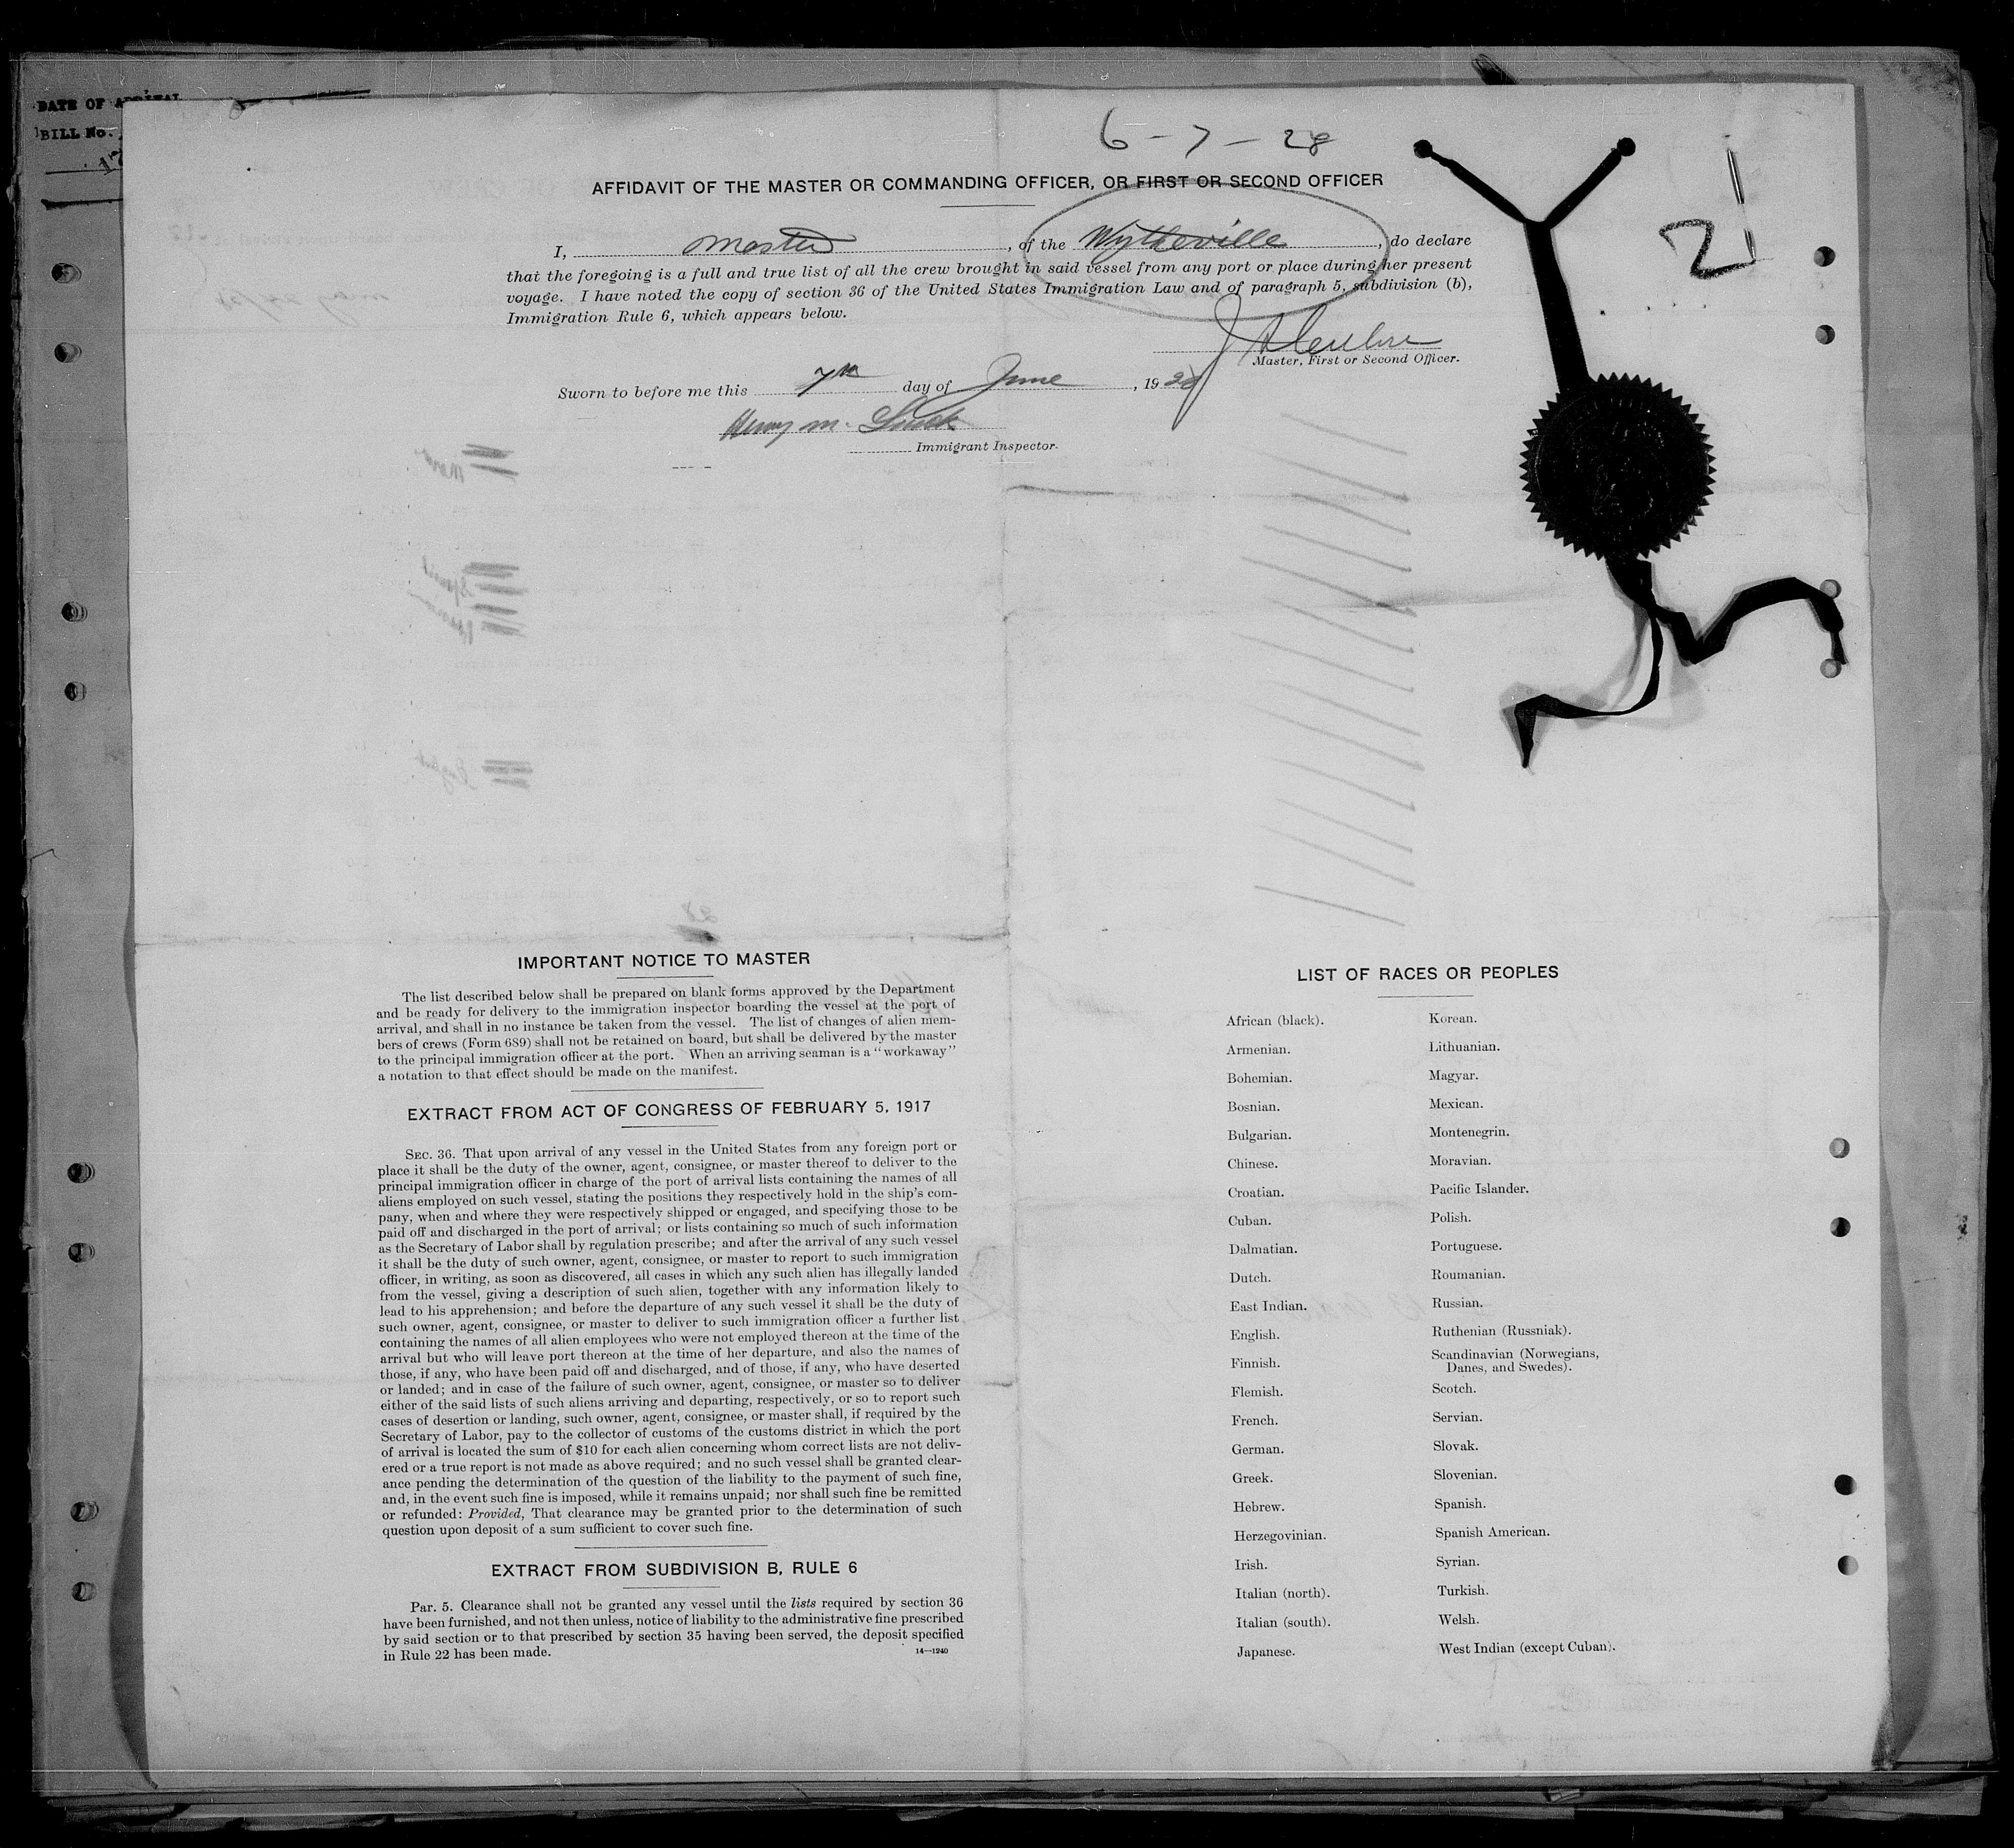 DATE OF ARRIVAL
BILL No.
17
6 - 7 - 28
2
AFFIDAVIT OF THE MASTER OR COMMANDING OFFICER, OR FIRST OR SECOND OFFICER
I, Master, of the Wytheville, do declare
that the foregoing is a full and true list of all the crew brought in said vessel from any port or place during her present
voyage. I have noted the copy of section 36 of the United States Immigration Law and of paragraph 5, subdivision (b),
Immigration Rule 6, which appears below.
Master, First or Second Officer.
Sworn to before me this 7th day of June, 1928
Henry M.
Immigrant Inspector.
28
IMPORTANT NOTICE TO MASTER
The list described below shall be prepared on blank forms approved by the Department
and be ready for delivery to the immigration inspector boarding the vessel at the port of
arrival, and shall in no instance be taken from the vessel. The list of changes of alien mem-
bers of crews (Form 689) shall not be retained on board, but shall be delivered by the master
to the principal immigration officer at the port. When an arriving seaman is a "workaway"
a notation to that effect should be made on the manifest.
EXTRACT FROM ACT OF CONGRESS OF FEBRUARY 5, 1917
SEC. 36. That upon arrival of any vessel in the United States from any foreign port or
place it shall be the duty of the owner, agent, consignee, or master thereof to deliver to the
principal immigration officer in charge of the port of arrival lists containing the names of all
aliens employed on such vessel, stating the positions they respectively hold in the ship's com-
pany, when and where they were respectively shipped or engaged, and specifying those to be
paid off and discharged in the port of arrival; or lists containing so much of such information
as the Secretary of Labor shall by regulation prescribe; and after the arrival of any such vessel
it shall be the duty of such owner, agent, consignee, or master to report to such immigration
officer, in writing, as soon as discovered, all cases in which any such alien has illegally landed
from the vessel, giving a description of such alien, together with any information likely to
lead to his apprehension; and before the departure of any such vessel it shall be the duty of
such owner, agent, consignee, or master to deliver to such immigration officer a further list
containing the names of all alien employees who were not employed thereon at the time of the
arrival but who will leave port thereon at the time of her departure, and also the names of
those, if any, who have been paid off and discharged, and of those, if any, who have deserted
or landed; and in case of the failure of such owner, agent, consignee, or master so to deliver
either of the said lists of such aliens arriving and departing, respectively, or so to report such
cases of desertion or landing, such owner, agent, consignee, or master shall, if required by the
Secretary of Labor, pay to the collector of customs of the customs district in which the port
of arrival is located the sum of $10 for each alien concerning whom correct lists are not deliv-
ered or a true report is not made as above required; and no such vessel shall be granted clear-
ance pending the determination of the question of the liability to the payment of such fine,
and, in the event such fine is imposed, while it remains unpaid; nor shall such fine be remitted
or refunded: Provided, That clearance may be granted prior to the determination of such
question upon deposit of a sum sufficient to cover such fine.
EXTRACT FROM SUBDIVISION B, RULE 6
Par. 5. Clearance shall not be granted any vessel until the lists required by section 36
have been furnished, and not then unless, notice of liability to the administrative fine prescribed
by said section or to that prescribed by section 35 having been served, the deposit specified
in Rule 22 has been made.
14—1240
LIST OF RACES OR PEOPLES
African (black).
Armenian.
Bohemian.
Bosnian.
Bulgarian.
Chinese.
Croatian.
Cuban.
Dalmatian.
Dutch.
East Indian.
English.
Finnish.
Flemish.
French.
German.
Greek.
Hebrew.
Herzegovinian.
Irish.
Italian (north).
Italian (south).
Japanese.
Korean.
Lithuanian.
Magyar.
Mexican.
Montenegrin.
Moravian.
Pacific Islander.
Polish.
Portuguese.
Roumanian.
Russian.
Ruthenian (Russniak).
Scandinavian (Norwegians,
Danes, and Swedes).
Scotch.
Servian.
Slovak.
Slovenian.
Spanish.
Spanish American.
Syrian.
Turkish.
Welsh.
West Indian (except Cuban).